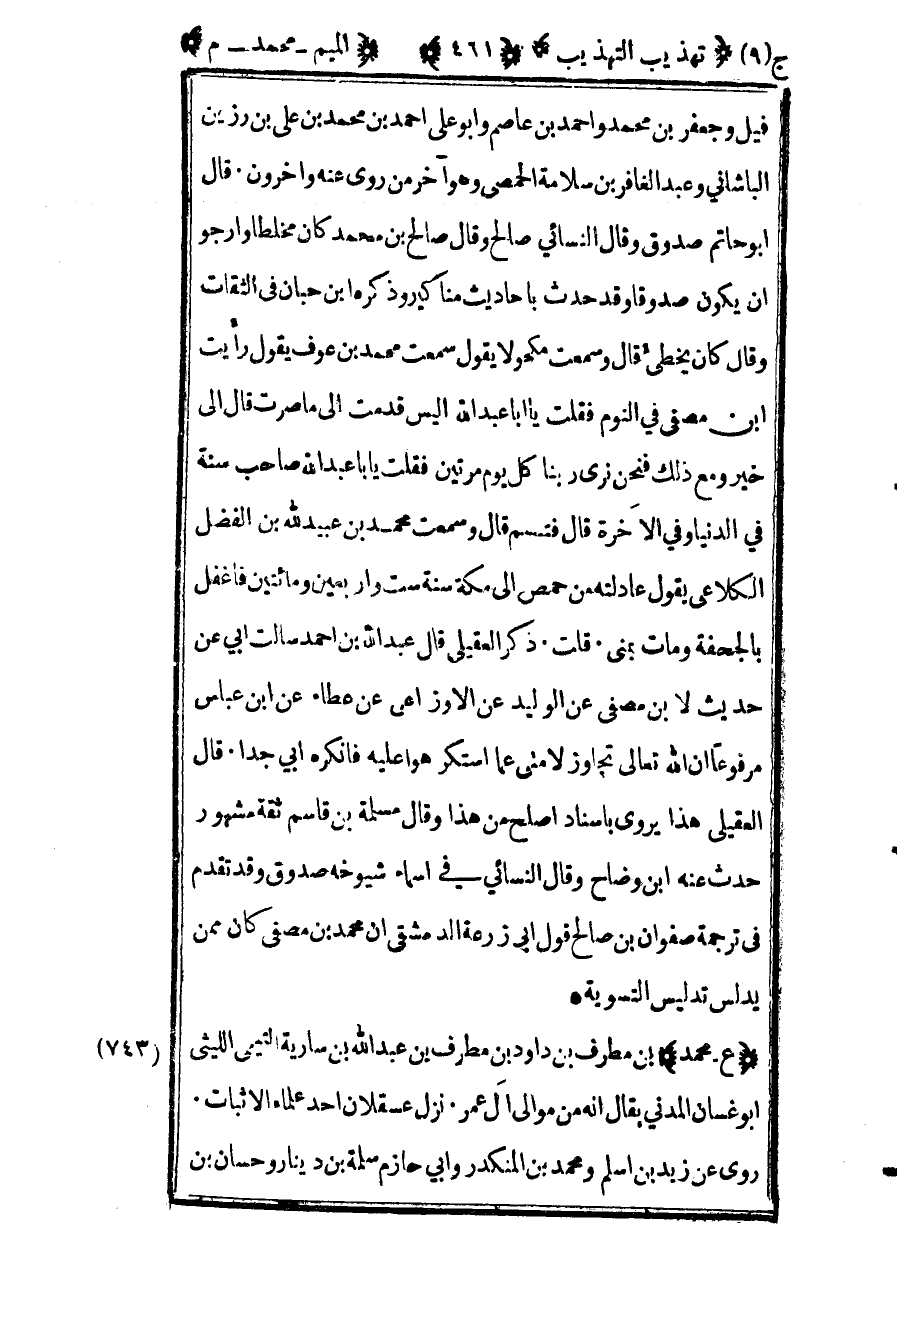 ج(٩) ﴿ تهذيب التهذيب ﴾ ﴿ ٤٦١ ﴾ ﴿ الميم ـ محمد ـ م ﴾
فيل وجعفر بن محمد واحمد بن عاصم وابو علي احمد بن محمد بن علي بن رزين
الباشاني وعبد الغافر بن سلامة الحمصي وهو آخر من روى عنه واخرون · قال
ابو حاتم صدوق وقال النسائي صالح وقال صالح بن محمد كان مخلطا وارجو
ان يكون صدوقا وقد حدث باحاديث مناكير وذكره ابن حبان في الثقات
وقال كان يخطئ قال وسمعت مكحولا يقول سمعت محمد بن عوف يقول رأيت
ابن مصفى في النوم فقلت يا ابا عبدالله اليس قدمت الى ما صرت قال الى
خير ومع ذلك فنحن نرى ربنا كل يوم مرتين فقلت يا با عبدالله صاحب سنة
في الدنيا وفي الآخرة قال فتبسم قال وسمعت محمد بن عبيدالله بن الفضل
الكلاعي يقول عادلته من حمص الى مكة سنة ست واربعين ومائتين فاغفل
بالجحفة ومات بمنى · قلت · ذكر العقيلي قال عبدالله بن احمد سالت ابي عن
حديث لابن مصفى عن الوليد عن الاوزاعي عن عطاء عن ابن عباس
مرفوعا ان الله تعالى تجاوز لامتي عما استكرهوا عليه فانكره ابي جدا · قال
العقيلي هذا يروى باسناد اصلح من هذا وقال مسلمة بن قاسم ثقة مشهور
حدث عنه ابن وضاح وقال النسائي في اسماء شيوخه صدوق وقد تقدم
في ترجمة صفوان بن صالح قول ابي زرعة الدمشقي ان محمد بن مصفى كان ممن
يدلس تدليس التسوية •
﴿ ع ـ محمد ﴾ بن مطرف بن داود بن مطرف بن عبدالله بن سارية التيمي الليثي (٧٤٣)
ابو غسان المدني يقال انه من موالى آل عمر · نزل عسقلان احد علماء الاثبات ·
روى عن زيد بن اسلم ومحمد بن المنكدر وابي حازم سلمة بن دينار وحسان بن